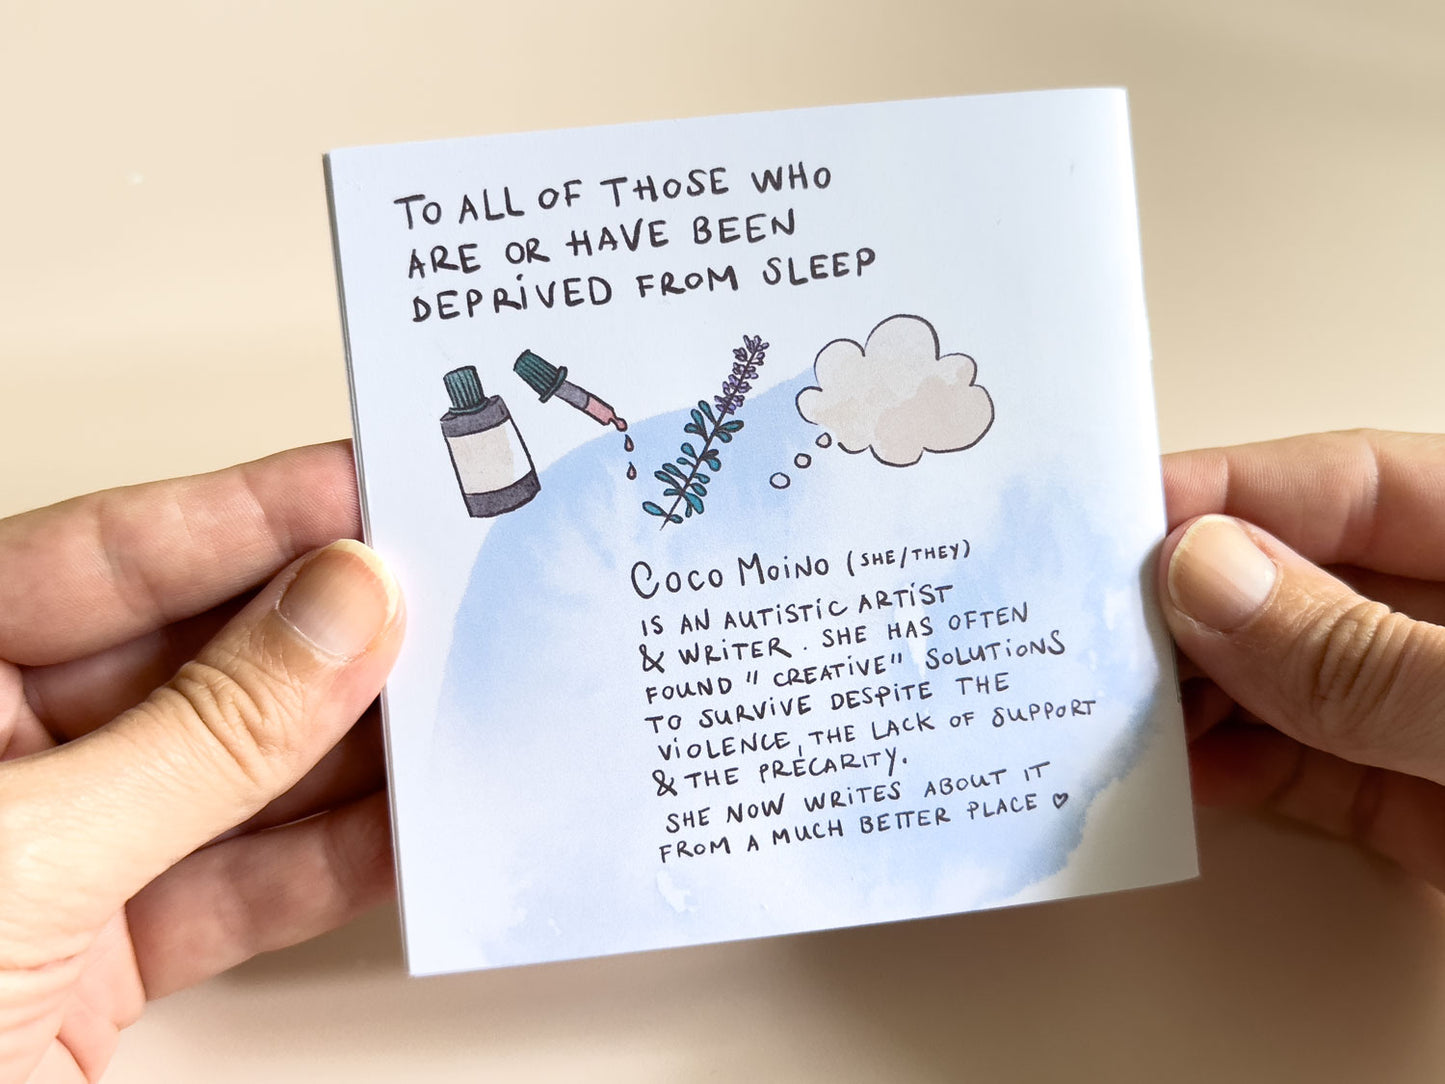 TO ALL OF THOSE WHO
ARE OR HAVE BEEN
DEPRIVED FROM SLEEP
COCO MOINO (SHE/THEY)
IS AN AUTISTIC ARTIST
& WRITER. SHE HAS OFTEN
FOUND "CREATIVE" SOLUTIONS
TO SURVIVE DESPITE THE
VIOLENCE, THE LACK OF SUPPORT
& THE PRECARITY.
SHE NOW WRITES ABOUT IT
FROM A MUCH BETTER PLACE ♡